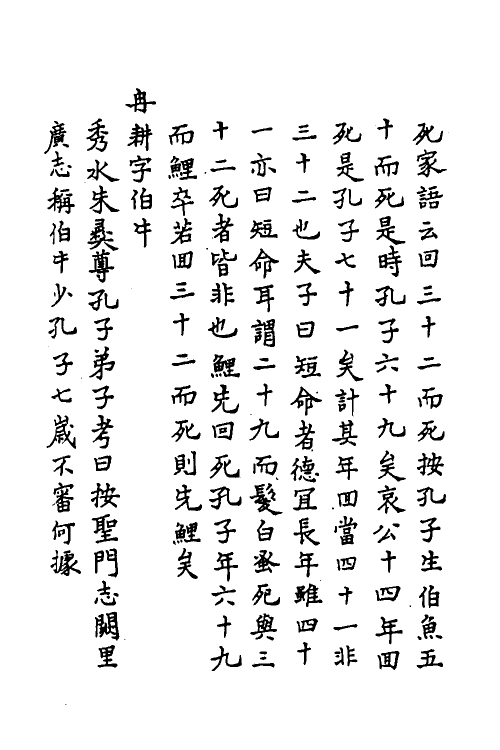 死家語云回三十二而死按孔子生伯魚五
十而死是時孔子六十九矣哀公十四年回
死是孔子七十一矣計其年回當四十一非
三十二也夫子曰短命者德冝長年雖四十
一亦曰短命耳謂二十九而髮白蚤死與三
十二死者皆非也鯉先回死孔子年六十九
而鯉卒若回三十二而死則先鯉矣
冉耕字伯牛
秀水朱彛尊孔子弟子考曰按聖門志闕里
廣志稱伯牛少孔子七歲不審何據